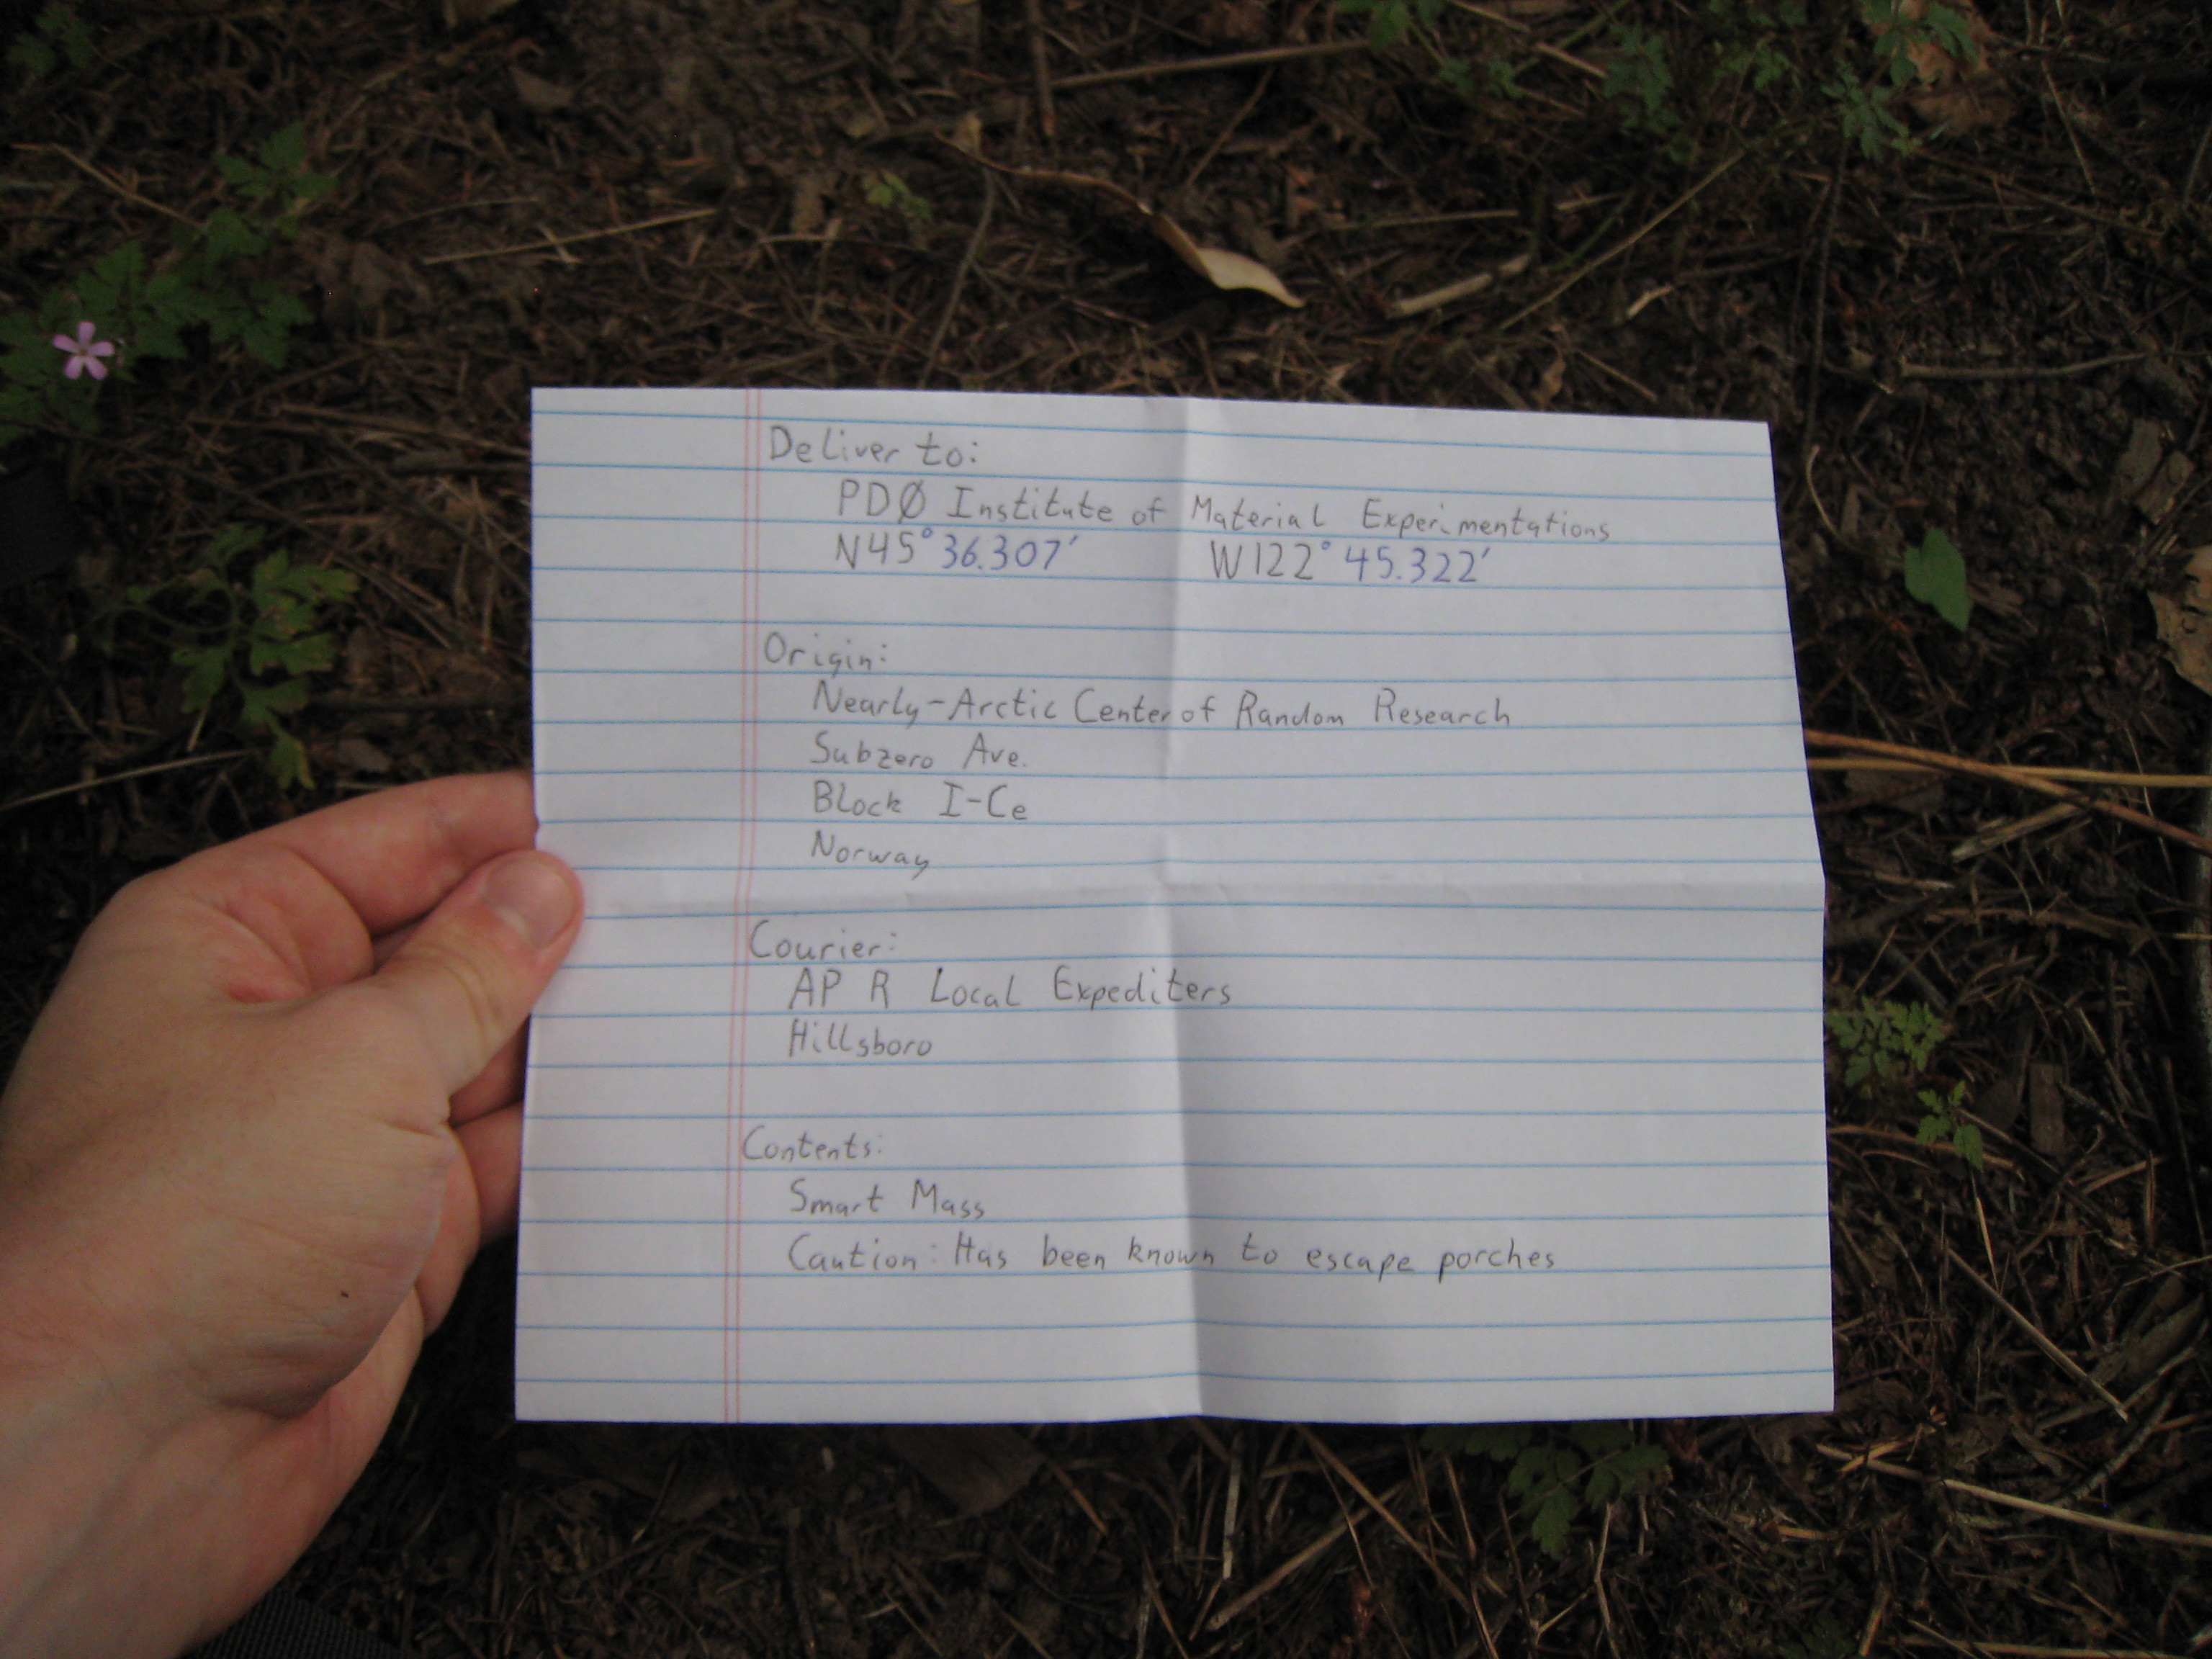 Deliver to:
PDØ Institute of Material Experimentations
N45°36.307' W122°45.322'
Origin:
Nearly-Arctic Center of Random Research
Subzero Ave.
Block I-Ce
Norway
Courier:
AP R Local Expediters
Hillsboro
Contents:
Smart Mass
Caution: Has been known to escape porches